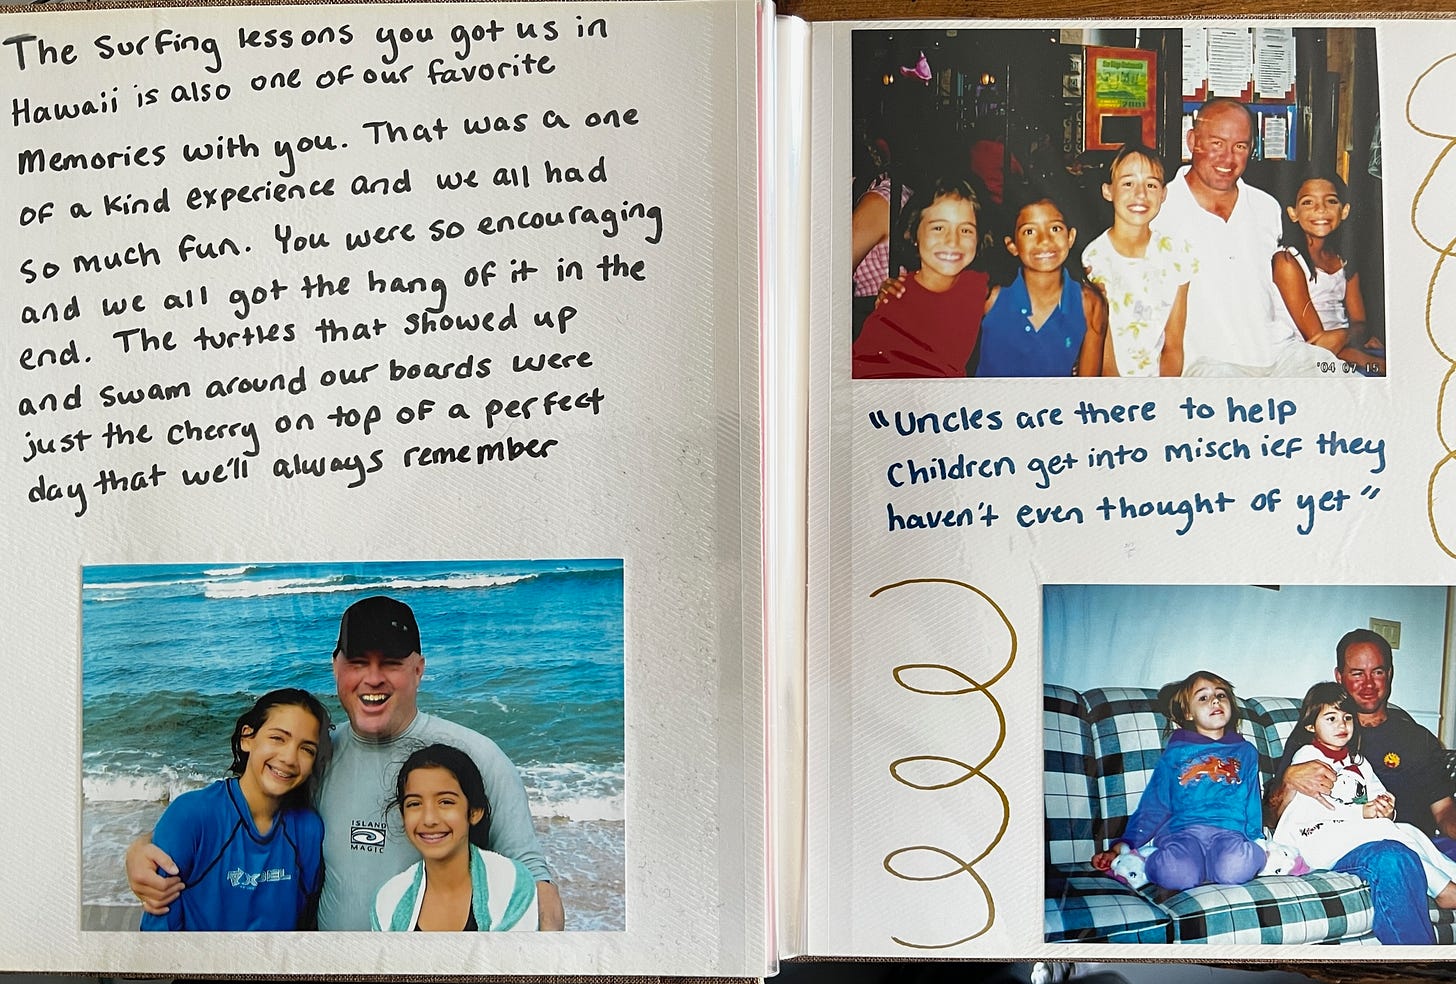 The Surfing lessons you got us in
Hawaii is also one of our favorite
Memories with you. That was a one
of a kind experience and we all had
so much fun. You were so encouraging
and we all got the hang of it in the
end. The turtles that showed up
and swam around our boards were
just the cherry on top of a perfect
day that we'll always remember
ISLAND
MAGIC
2001
'04 07 15
"Uncles are there to help
Children get into mischief they
haven't even thought of yet"